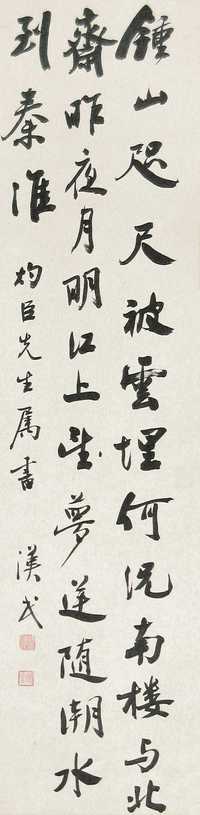 鍾山咫尺被雲埋何况南楼与北
齋昨夜月明江上望夢逆随潮水
到秦淮
灼臣先生属書 漢民